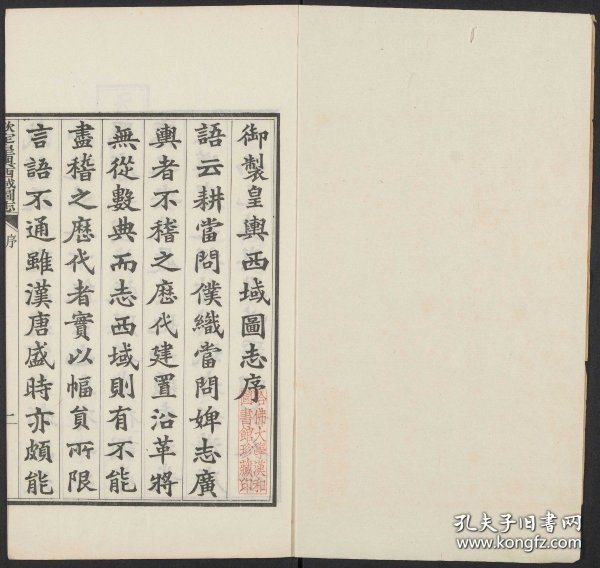 御製皇輿西域圖志序
語云耕當問僕織當問婢志廣
輿者不稽之歷代建置沿革將
無從數典而志西域則有不能
盡稽之歷代者實以幅員所限
言語不通雖漢唐盛時亦頗能
欽定皇輿西域圖志
序
一
哈佛大學漢和
圖書館珍藏印
孔夫子旧书网
www.kongfz.com